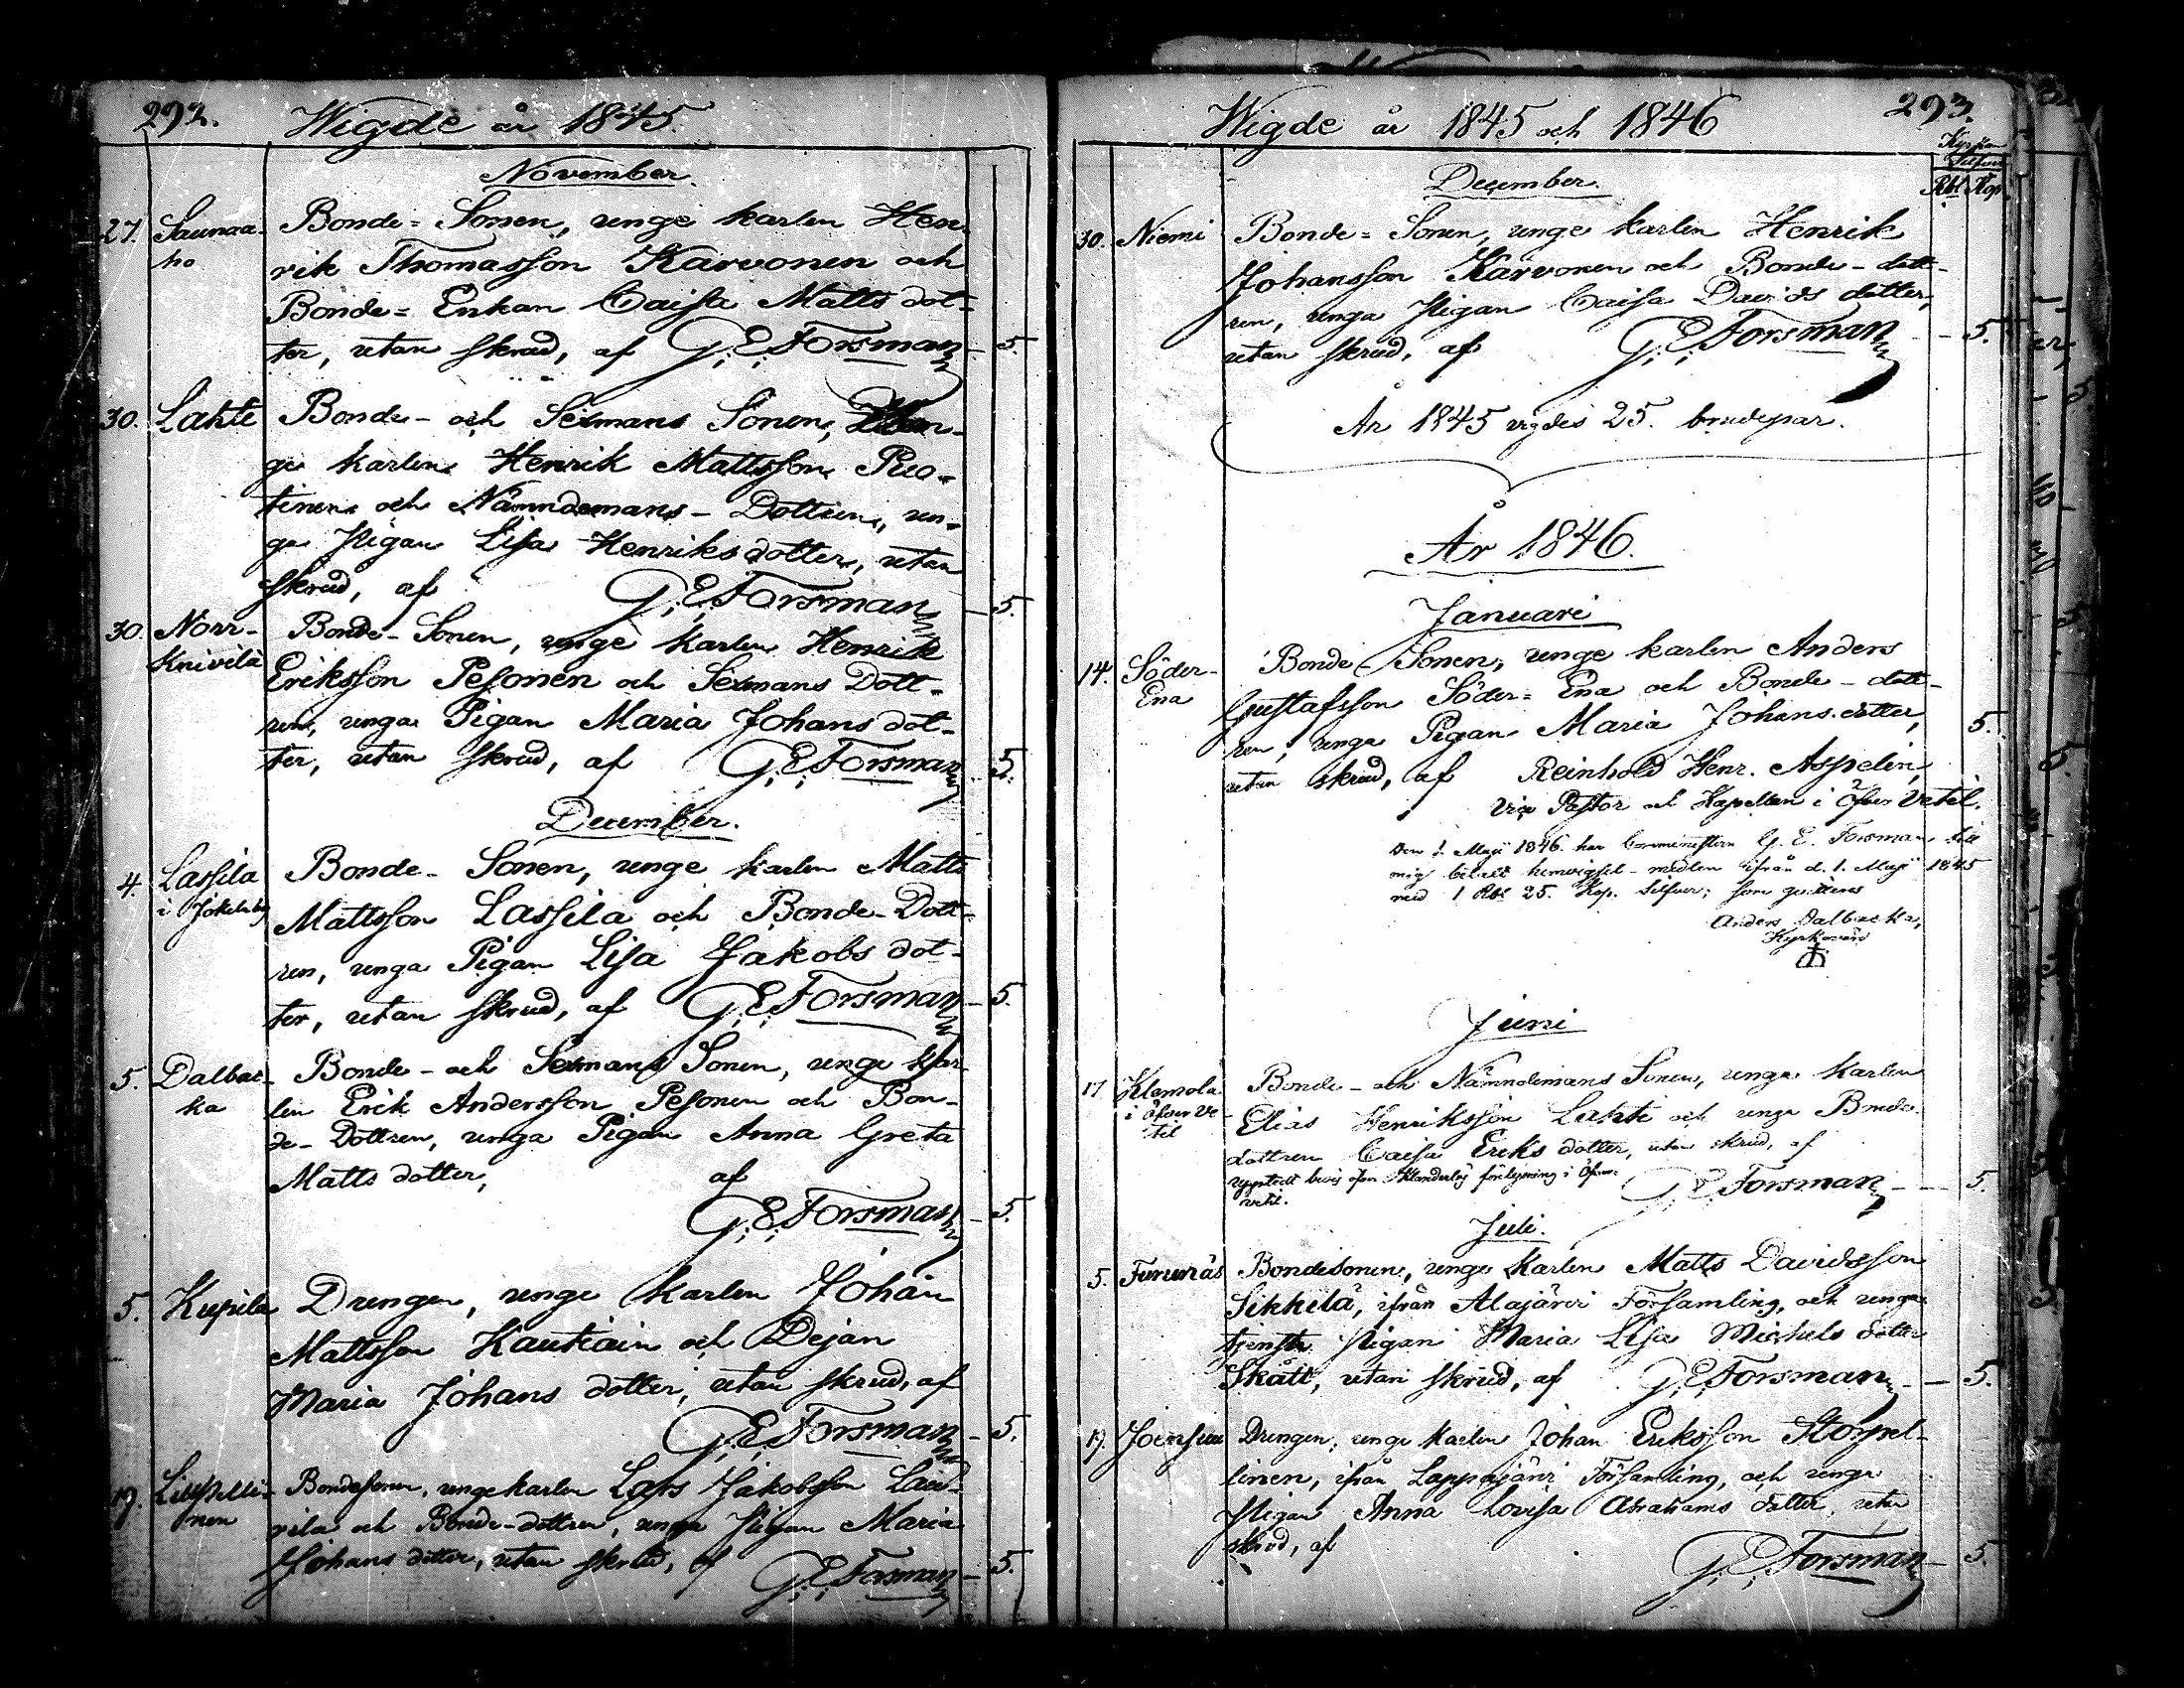 292. Wigde år 1845.
November.
27. Saunaa- Bonde= Sonen, unge karlen Hen-
ho rik Thomasson Karvonen och
Bonde= Enkan Caisa Matts dot-
ter, utan skrud, af G. E. Forsman - 5.
30. Lahti Bonde- och Sexmans Sonen, un-
ge karlen Henrik Mattsson Puo-
tinen och Nämndemans- Dottren, un-
ga Pigan Lisa Henriks dotter, utan
skrud, af G. E. Forsman - 5.
30. Norr- Bonde- Sonen, unge karlen Henrik
Knivilä Eriksson Pesonen och Sexmans Dott-
ren, unga Pigan Maria Johans dot-
ter, utan skrud, af G. E. Forsman - 5.
December.
4. Lassila Bonde- Sonen, unge karlen Matts
i Mattsson Lassila och Bonde- Dott-
ren, unga Pigan Lisa Jakobs dot-
ter, utan skrud, af G. E. Forsman - 5.
5. Dalbac- Bonde- och Sexmans Sonen, unge kar-
ka len Erik Andersson Pesonen och Bon-
de- Dottren, unga Pigan Anna Greta
Matts dotter, af
G. E. Forsman - 5.
5. Kupila Drengen, unge karlen Johan
Mattsson Kautiain och Pejan
Maria Johans dotter, utan skrud, af
G. E. Forsman - 5.
19. Bondesonen, unge karlen Lars Jakobsson
nen och Bonde-dottren, unga Pigan Maria
Johans dotter, utan skrud, af G. E. Forsman - 5.
Wigde år 1845 och 1846 293.
Kyrkan
Silfver
Rbl Kop
December.
30. Niemi Bonde= Sonen, unge karlen Henrik
Johansson Karvonen och Bonde- dott-
ren, unga Pigan Caisa Davids dotter,
utan skrud, af G. E. Forsman - 5.
År 1845 vigdes 25. brudepar.
År 1846.
Januari
14. Söder- Bonde- Sonen, unge karlen Anders
Ena Gustafsson Söder= Ena och Bonde- dott-
ren, unga Pigan Maria Johans dotter, 5.
utan skrud, af Reinhold Henr. Aspelin,
Vice Pastor och Kapellan i Öfver Vetil.
Den 1. Maji 1846. har Comministern G. E. Forsman till
mig betalt hemvigsel- medlen ifrån d. 1. Maji 1845
med 1 Rbl 25. Kop. Silfver; som quitteras
Anders Dalbacka,
Kyrkovärd
Juni
17. Klemola Bonde- och Nämndemans Sonen, unge karlen
i Öfver Ve- Elias Henriksson Lahti och unga Bonde
til dottren Caisa Eriks dotter, utan skrud, af
uppstedt bevis öfver klanderlös förlysning i Öfver-
vetil. G. E. Forsman - 5.
Juli.
5. Furunäs Bondesonen, unge karlen Matts Davidsson
Sikkilä, ifrån Alajärvi Församling, och unga
tjenste Pigan Maria Lisa Michels dotter
Skått, utan skrud, af G. E. Forsman - 5.
19. Joensuu Drengen, unge karlen Johan Eriksson Stoppel-
linen, ifrån Lappajärvi Församling, och unga
Pigan Anna Lovisa Abrahams dotter, utan
skrud, af
G. E. Forsman - 5.